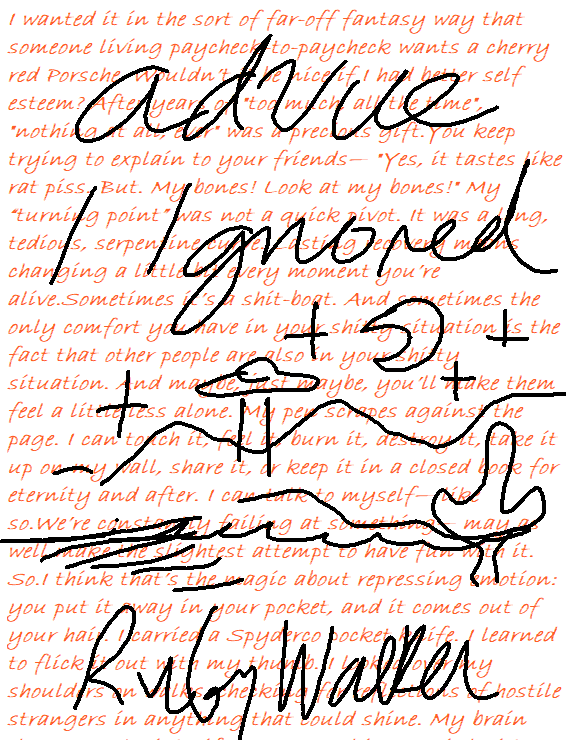 advice
I Ignored
Ruby Walker
I wanted it in the sort of far-off fantasy way that
someone living paycheck-to-paycheck wants a cherry
red Porsche. Wouldn't it be nice if I had better self
esteem? After years of "too much, all the time",
"nothing at all, ever" was a precious gift.You keep
trying to explain to your friends— "Yes, it tastes like
rat piss. But. My bones! Look at my bones!" My
"turning point" was not a quick pivot. It was a long,
tedious, serpentine curve. Lasting recovery means
changing a little bit every moment you're
alive.Sometimes it's a shit-boat. And sometimes the
only comfort you have in your shitty situation is the
fact that other people are also in your shitty
situation. And maybe, just maybe, you'll make them
feel a little less alone. My pen scrapes against the
page. I can touch it, feel it, burn it, destroy it, take it
up on my wall, share it, or keep it in a closed book for
eternity and after. I can talk to myself— like
so.We're constantly failing at something— may as
well make the slightest attempt to have fun with it.
So.I think that's the magic about repressing emotion:
you put it away in your pocket, and it comes out of
your hair. I carried a Spyderco pocket knife. I learned
to flick it out with my thumb. I looked over my
shoulders on walks, checking for reflections of hostile
strangers in anything that could shine. My brain